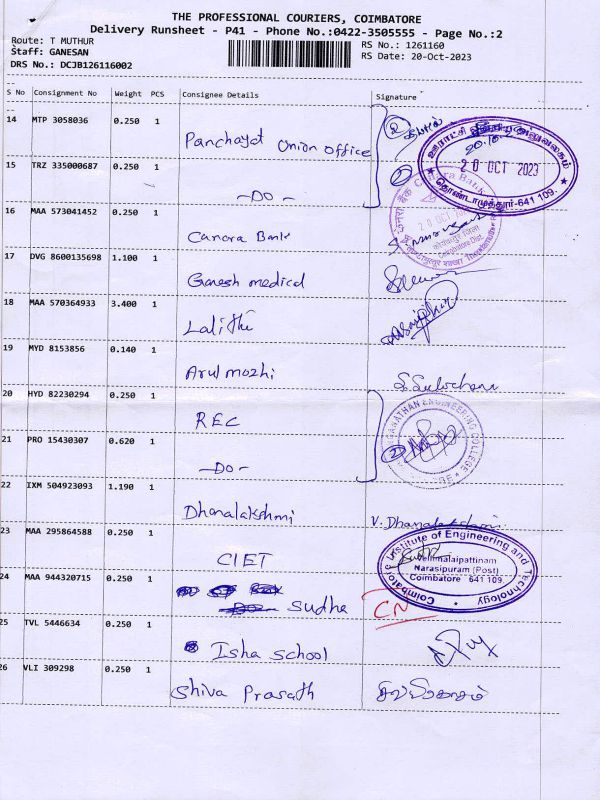 THE PROFESSIONAL COURIERS, COIMBATORE
Delivery Runsheet - P41 - Phone No.:0422-3505555 - Page No.:2
Route: T MUTHUR
Staff: GANESAN
DRS No.: DCJB126116002
RS No.: 1261160
RS Date: 20-Oct-2023
S No Consignment No Weight PCS Consignee Details Signature
14 MTP 3058036 0.250 1 Panchayat Union Office
ஊராட்சி ஒன்றிய அலுவலகம்
20 OCT 2023
தொண்டாமுத்தூர்-641 109.
15 TRZ 335000687 0.250 1 -Do-
Canara Bank
Coimbatore Dist.
16 MAA 573041452 0.250 1 Canara Bank
17 DVG 8600135698 1.100 1 Ganesh medical
18 MAA 570364933 3.400 1 Lalithi
19 MYD 8153856 0.140 1 Arul mozhi S. Sulochana
20 HYD 82230294 0.250 1 REC
ENGINEERING COLLEGE
21 PRO 15430307 0.620 1 -Do-
22 IXM 504923093 1.190 1 Dhanalakshmi V. Dhanalakshmi
23 MAA 295864588 0.250 1 CIET
Coimbatore Institute of Engineering and Technology
Vellimalaipattinam
Narasipuram (Post)
Coimbatore 641 109.
24 MAA 944320715 0.250 1 Sudha CN
25 TVL 5446634 0.250 1 Isha School
26 VLI 309298 0.250 1 Shiva Prasath சிவபிரகாசம்